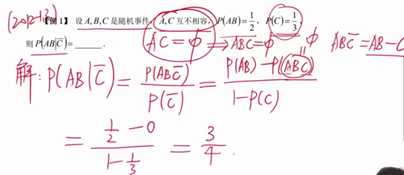 (2012-13)
【例1】 设 A,B,C 是随机事件, A,C 互不相容, P(AB)=1/2, P(C)=1/3,
则 P(AB|C̄)=______.
AC=φ ⇒ ABC=φ φ ABC̄=AB-C
解: P(AB|C̄) = P(ABC̄)/P(C̄) = P(AB)-P(ABC)/1-P(C)
= 1/2-0/1-1/3 = 3/4.